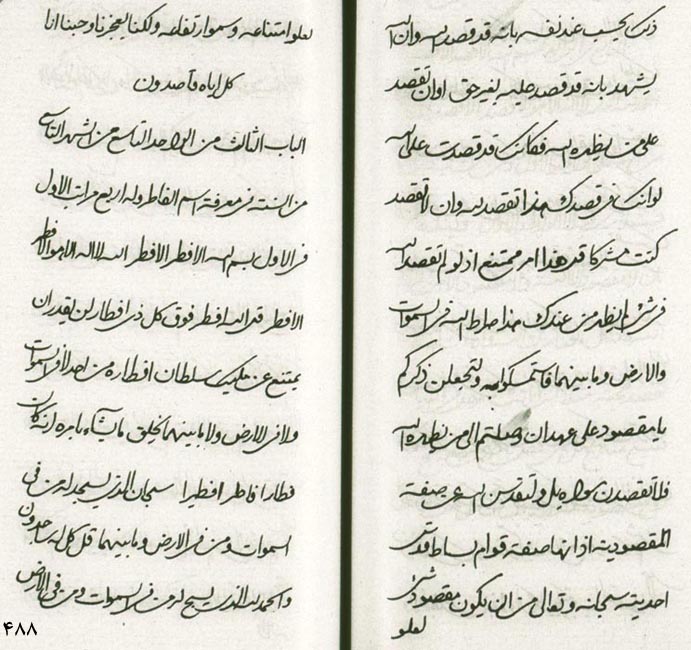 ذلك يحسب عند نفسه بانه قد قصد الله وان الله
يشهد بانه قد قصد عليه بغير حق او ان تقصد
على من يظهره الله فكانك قد قصدت على الله
لو انك في قصدك هذا تقصد الله وان لا تقصد
كنت مشركا قد هذا امر ممتنع اذ لو لم تقصد الله
في شيء لم يظهر من عندك هذا صراط الله في السموات
والارض وما بينهما فاستمسكوا به ولتجعلن ذكركم
يا مقصود على عهد ان وصلتم الى من يظهره الله
فلا تقصدن سواه بل ولتقدسن الله عن صفته
المقصودية اذ انها صفته قوام بساط قدس
احديته سبحانه وتعالى من ان يكون مقصود شيء
لعلو
لعلو امتناعه وسمو ارتفاعه ولكنا بعجزنا وحبنا انا
كل اياه قاصدون
الباب الثالث من الواحد التاسع من الشهر التاسع
من السنة في معرفة اسم الفاطر وله اربع مراتب الاول
في الاول بسم الله الافطر الافطر الله لا اله الا هو الافطر
الافطر قل الله افطر فوق كل ذي افطار لن يقدر ان
يمتنع عن مليك سلطان افطاره من احد لا في السموات
ولا في الارض ولا ما بينهما يخلق ما يشاء بامره انه كان
فطارا فاطرا فطيرا سبحان الذي يسجد له من في
السموات ومن في الارض وما بينهما قل كل له ساجدون
والحمد لله الذي يسبح له من في السموات ومن في الارض
۴۸۸